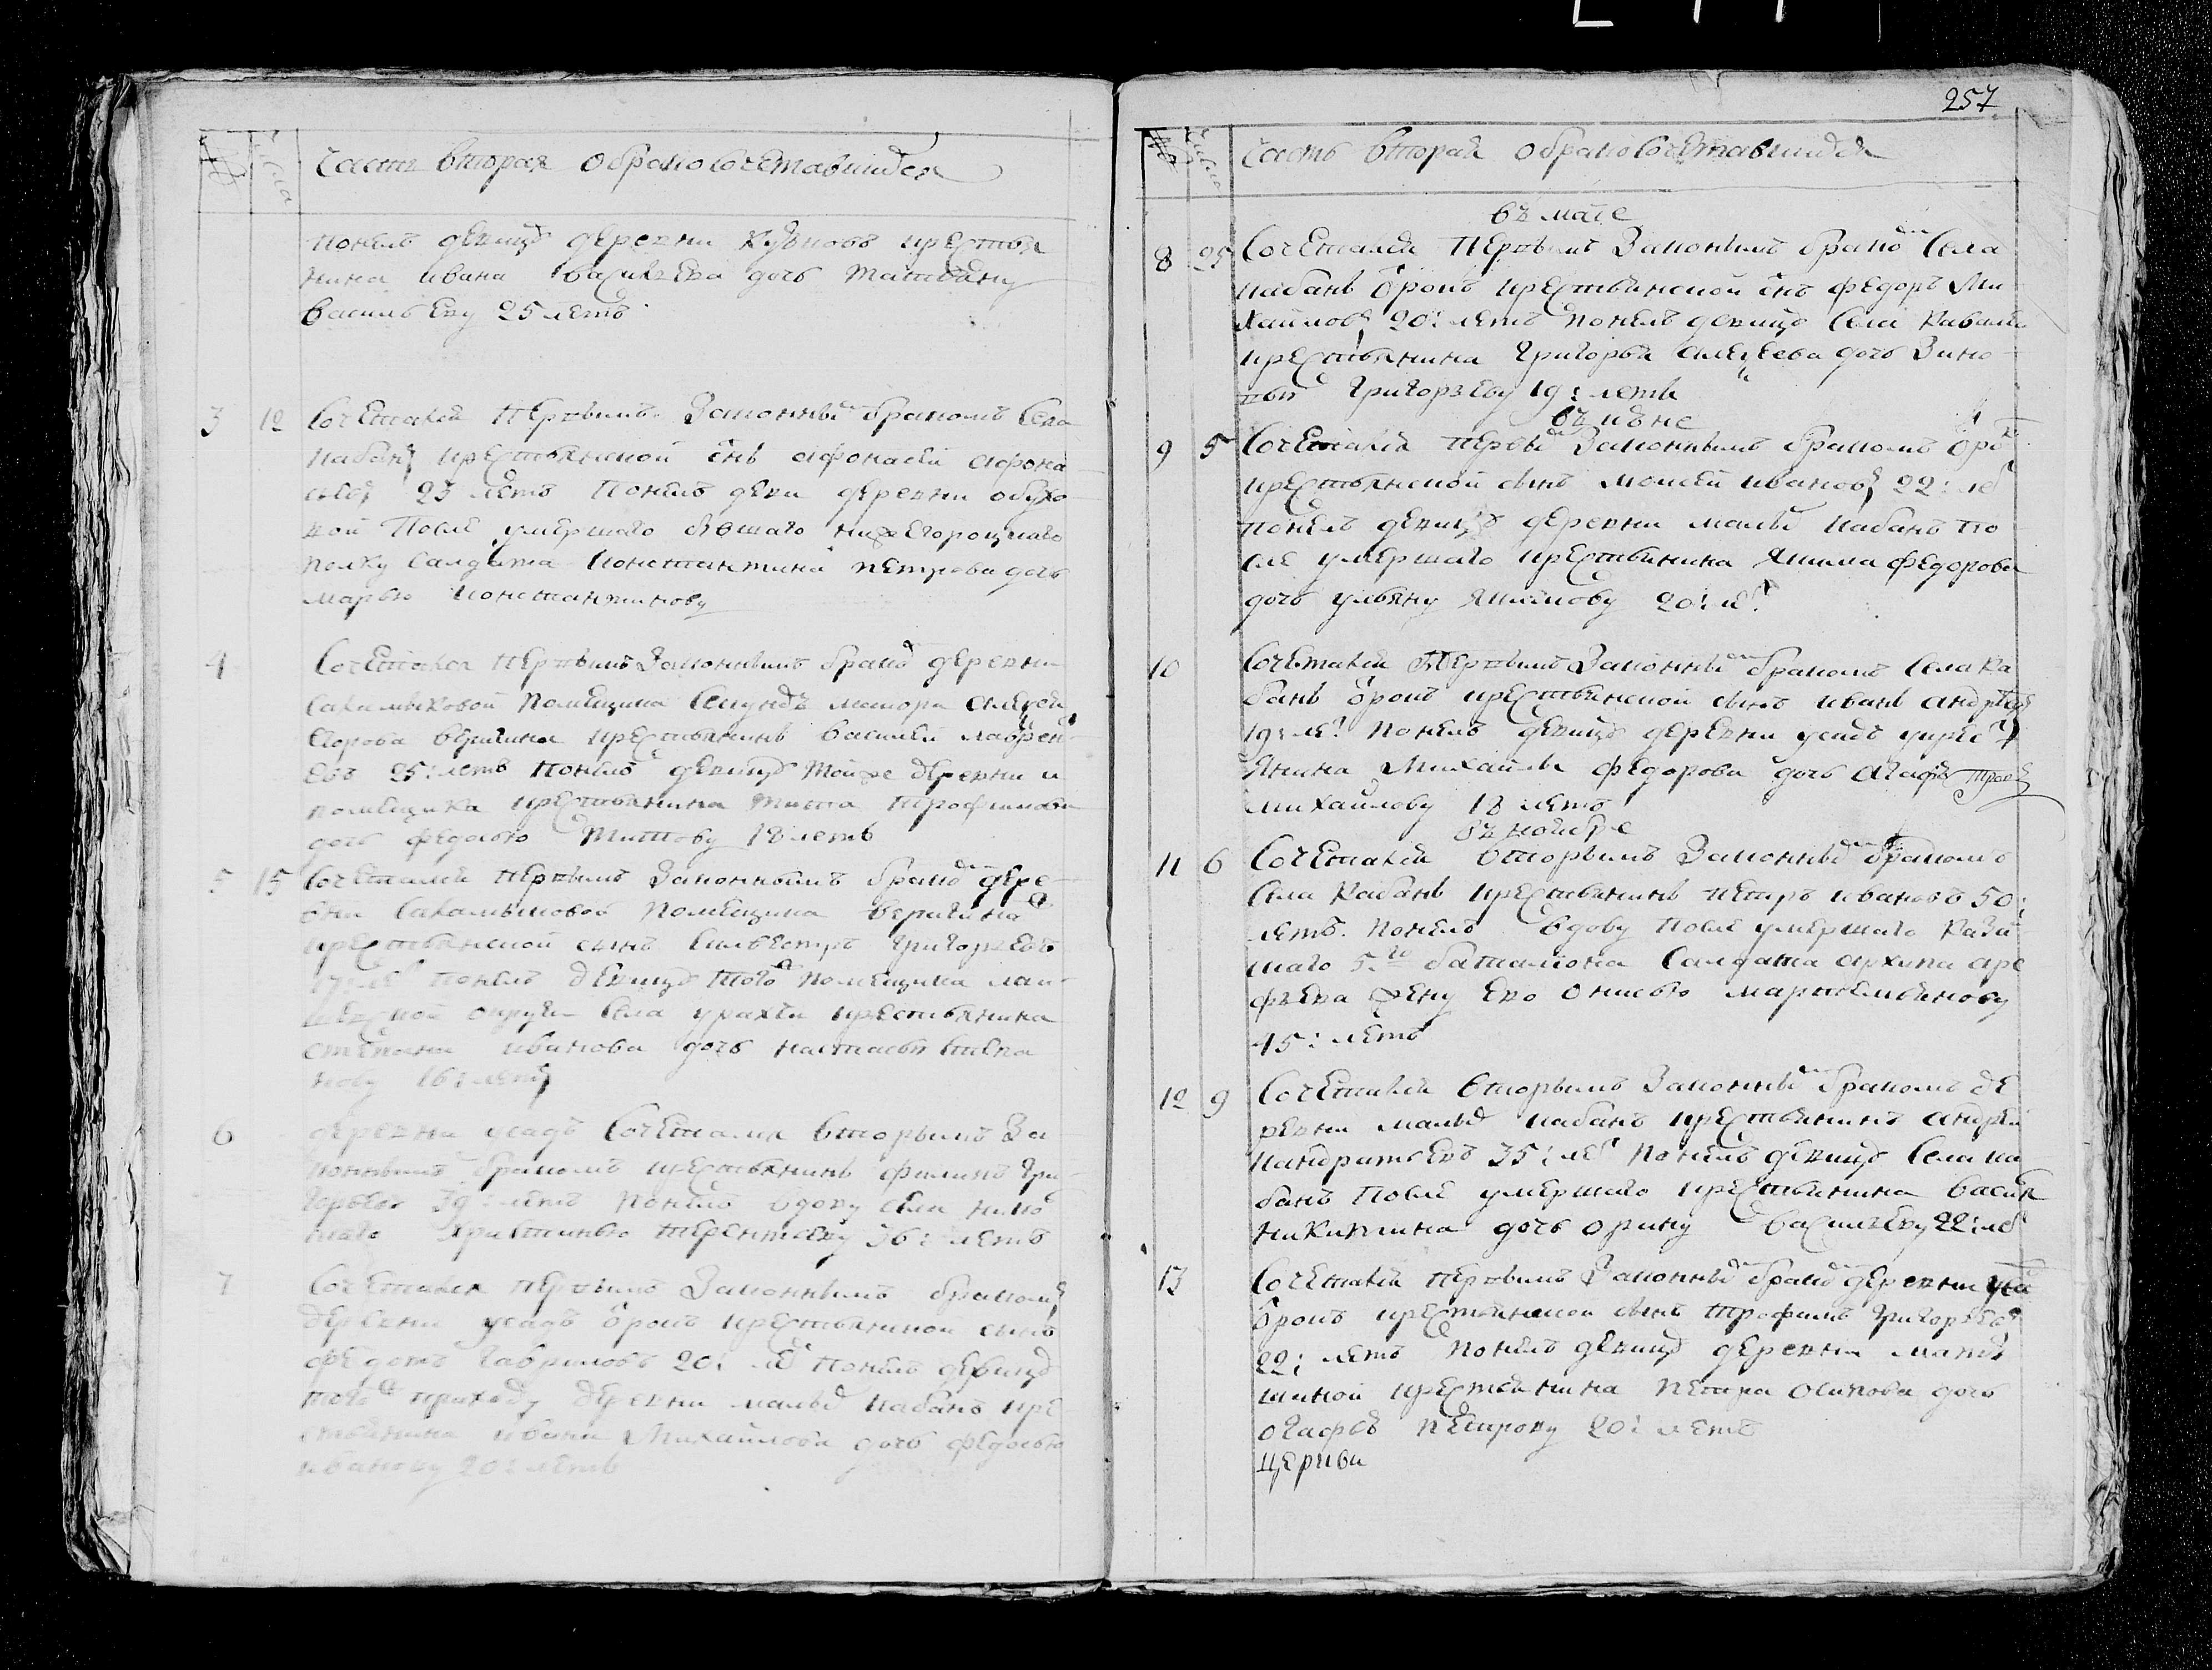 часть вторая о бракосочетавшихся
понелъ девицу деревни крестья
нина ивана васильева дочь татьяну
васильеву 25 летъ
3 12 Сочетался первымъ законнымъ бракомъ села
кабанъ крестьянской снъ афонасей афона
сьевъ 23 летъ понелъ деви деревни обухо
вой после умершаго бывшаго нижегороцкаго
полку салдата константина петрова дочь
марью константинову
4 Сочетался первымъ законнымъ бракомъ деревни
помещика секундъ маиора алексея
егорова веригина крестьянинъ василей лаврен
евъ 25: летъ понелъ девицу тойже деревни и
помещика крестьянина тита трофимова
дочь федосью титову 18 летъ
5 15 Сочетался первымъ законнымъ бракомъ дере
вни помещика веригина
крестьянской сынъ силвестръ григорьевъ
17: ле понелъ девицу того помещика лаи
шевской округи села урахчи крестьянина
степана иванова дочь настасью степа
нову 16: летъ
6 деревни усадъ сочетался вторымъ за
коннымъ бракомъ крестьянинъ филипъ гри
горьевъ 39: летъ понелъ вдову села
христинью терентьеву 36: летъ
7 Сочетался первымъ законнымъ бракомъ
деревни усадъ крестьянской сынъ
федотъ гавриловъ 20: ле понелъ девицу
того приходу деревни малыхъ кабанъ кре
стьянина ивана михайлова дочь федосью
иванову 20: летъ
257
часть вторая о бракосочетавшихся
въ маие
8 25 Сочетался первымъ законнымъ бракомъ села
кабанъ крестьянской снъ федоръ ми
хайловъ 20: летъ понелъ девицу села
крестьянина григорья алексеева дочь зино
вью григорьеву 19: летъ
въ июне
9 5 Сочетался первымъ законнымъ бракомъ
крестьянской сынъ моисей ивановъ 22: ле
понелъ девицу деревни малыхъ кабанъ по
сле умершаго крестьянина якима федорова
дочь ульяну якимову 20: ле
10 Сочетался первымъ законнымъ бракомъ села ка
банъ крестьянской сынъ иванъ андреевъ
19: ле понелъ девицу деревни усадъ крес
янина михайла федорова дочь
михайлову 18 летъ
въ ноябре
11 6 Сочетался вторымъ законнымъ бракомъ
села кабанъ крестьянинъ петръ ивановъ 50:
летъ понелъ вдову после умершаго каза
нскаго 5.го баталиона салдата архипа аре
фьева жену ево онисью
45: летъ
12 9 Сочетался вторымъ законнымъ бракомъ де
ревни малыхъ кабанъ крестьянинъ андрей
кандратьевъ 35: ле понелъ девицу села ка
банъ после умершаго крестьянина васил
никитина дочь орину васильеву 22: ле
13 Сочетался первымъ законнымъ бракомъ деревни уса
крестьянской сынъ трофимъ григорьевъ
22: летъ понелъ девицу деревни матю
шиной крестьянина петра осипова дочь
огафью петрову 20: летъ
церкви